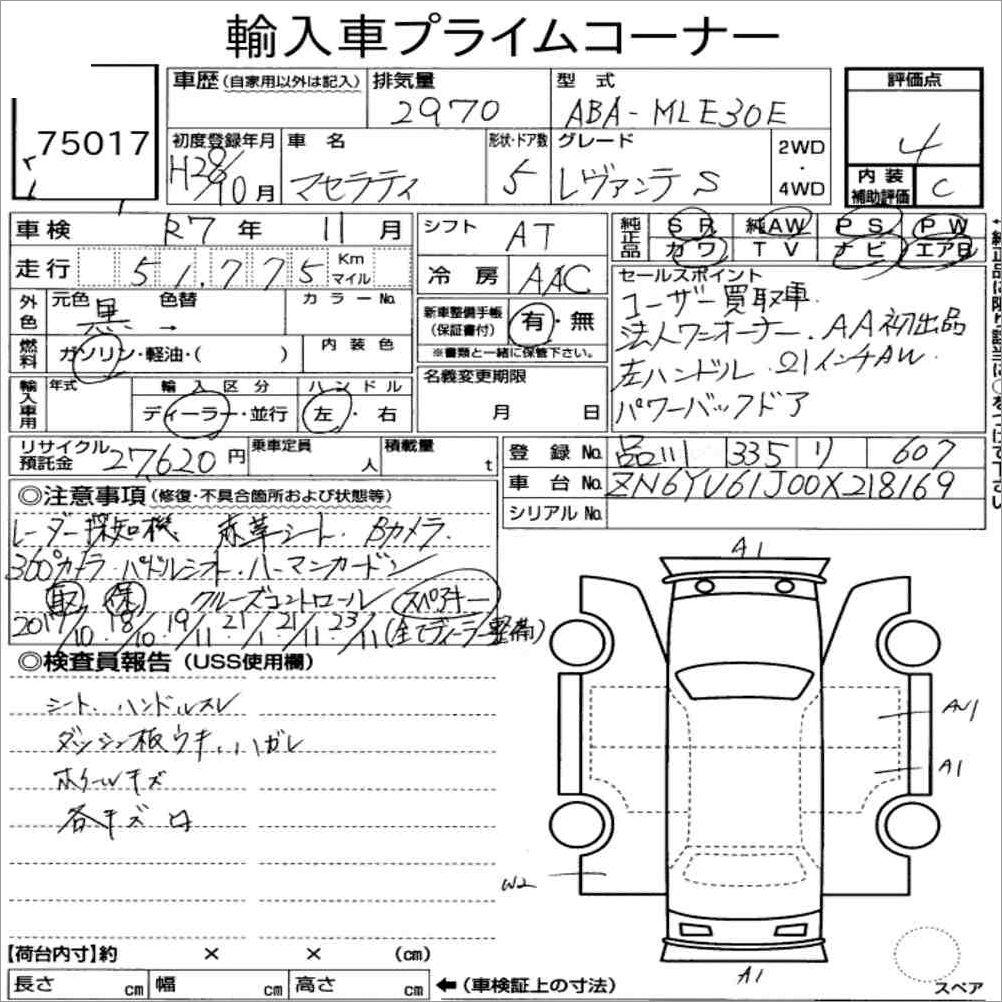 輸入車プライムコーナー
75017
車歴(自家用以外は記入) 排気量 2970 型式 ABA-MLE30E 評価点 4
初度登録年月 H28/10月 車名 マセラティ 形状・ドア数 5 グレード レヴァンテ S 2WD・4WD 内装補助評価 C
車検 R7年 11月 シフト AT 純正品 SR 純AW PS PW
カワ TV ナビ エアB
走行 51,775 Km マイル 冷房 AAC
外色 元色 黒 → 色替 カラーNo.
新車整備手帳(保証書付) 有・無
※書類と一緒に保管下さい。
燃料 ガソリン・軽油・( ) 内装色
輸入車用 年式 輸入区分 ディーラー・並行 ハンドル 左・右
名義変更期限 月 日
セールスポイント
ユーザー買取車
法人ワンオーナー. AA初出品
左ハンドル. 21インチAW.
パワーバックドア
リサイクル預託金 27,620円 乗車定員 人 積載量 t
登録No. 品川 335 リ 607
車台No. ZN6YU61J00X218169
シリアルNo.
◎注意事項(修復・不具合箇所および状態等)
レーダー探知機 赤革シート. Bカメラ.
360°カメラ・パドルシフト・ハーマンカードン
取 保 クルーズコントロール スペアキー
2017/10 18/10 19/11 21/1 21/11 23/11 (全てディーラー整備)
◎検査員報告(USS使用欄)
シート. ハンドルスレ
ダッシュ板ウキ. ハガレ
ホイールキズ
各キズ
A1
AU1
A1
W2
A1
スペア
【荷台内寸】約 × × (cm)
長さ cm 幅 cm 高さ cm ←(車検証上の寸法)